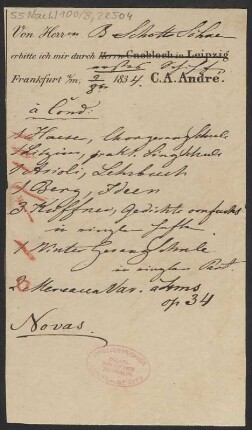 55 Nachl 100/B, 22504
Von Herren B Schotts Söhne
erbitte ich mir durch Herrn Cnobloch in Leipzig
Frankfurt a/m, 2/8 1834. C. A. André.
à Cond:
Häser, Chorgesangschule
pract. Singschule
Asioli, Lehrbuch
Berg, Ideen
3 Küffner, Gedichte
in einzeln Heften.
Winter Gesangschule
in einzeln Part
2 Mereaux Var. à 4ms
op 34
Novas.